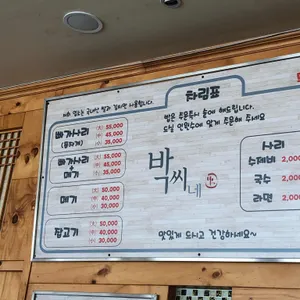 저희 업소는 국내산 쌀과 김치만 사용합니다.
차림표
밥은 주문즉시 솥에 해드립니다.
드실 인원수에 맞게 주문해 주세요
빠가사리
(동자개)
(大) 55,000
(中) 45,000
(小) 35,000
빠가사리
+
메기
(大) 55,000
(中) 45,000
(小) 35,000
메기
(大) 50,000
(中) 40,000
(小) 30,000
잡고기
(大) 50,000
(中) 40,000
(小) 30,000
박씨네
맛있게 드시고 건강하세요~
사리
수제비 2,000
국수 2,00
라면 2,00